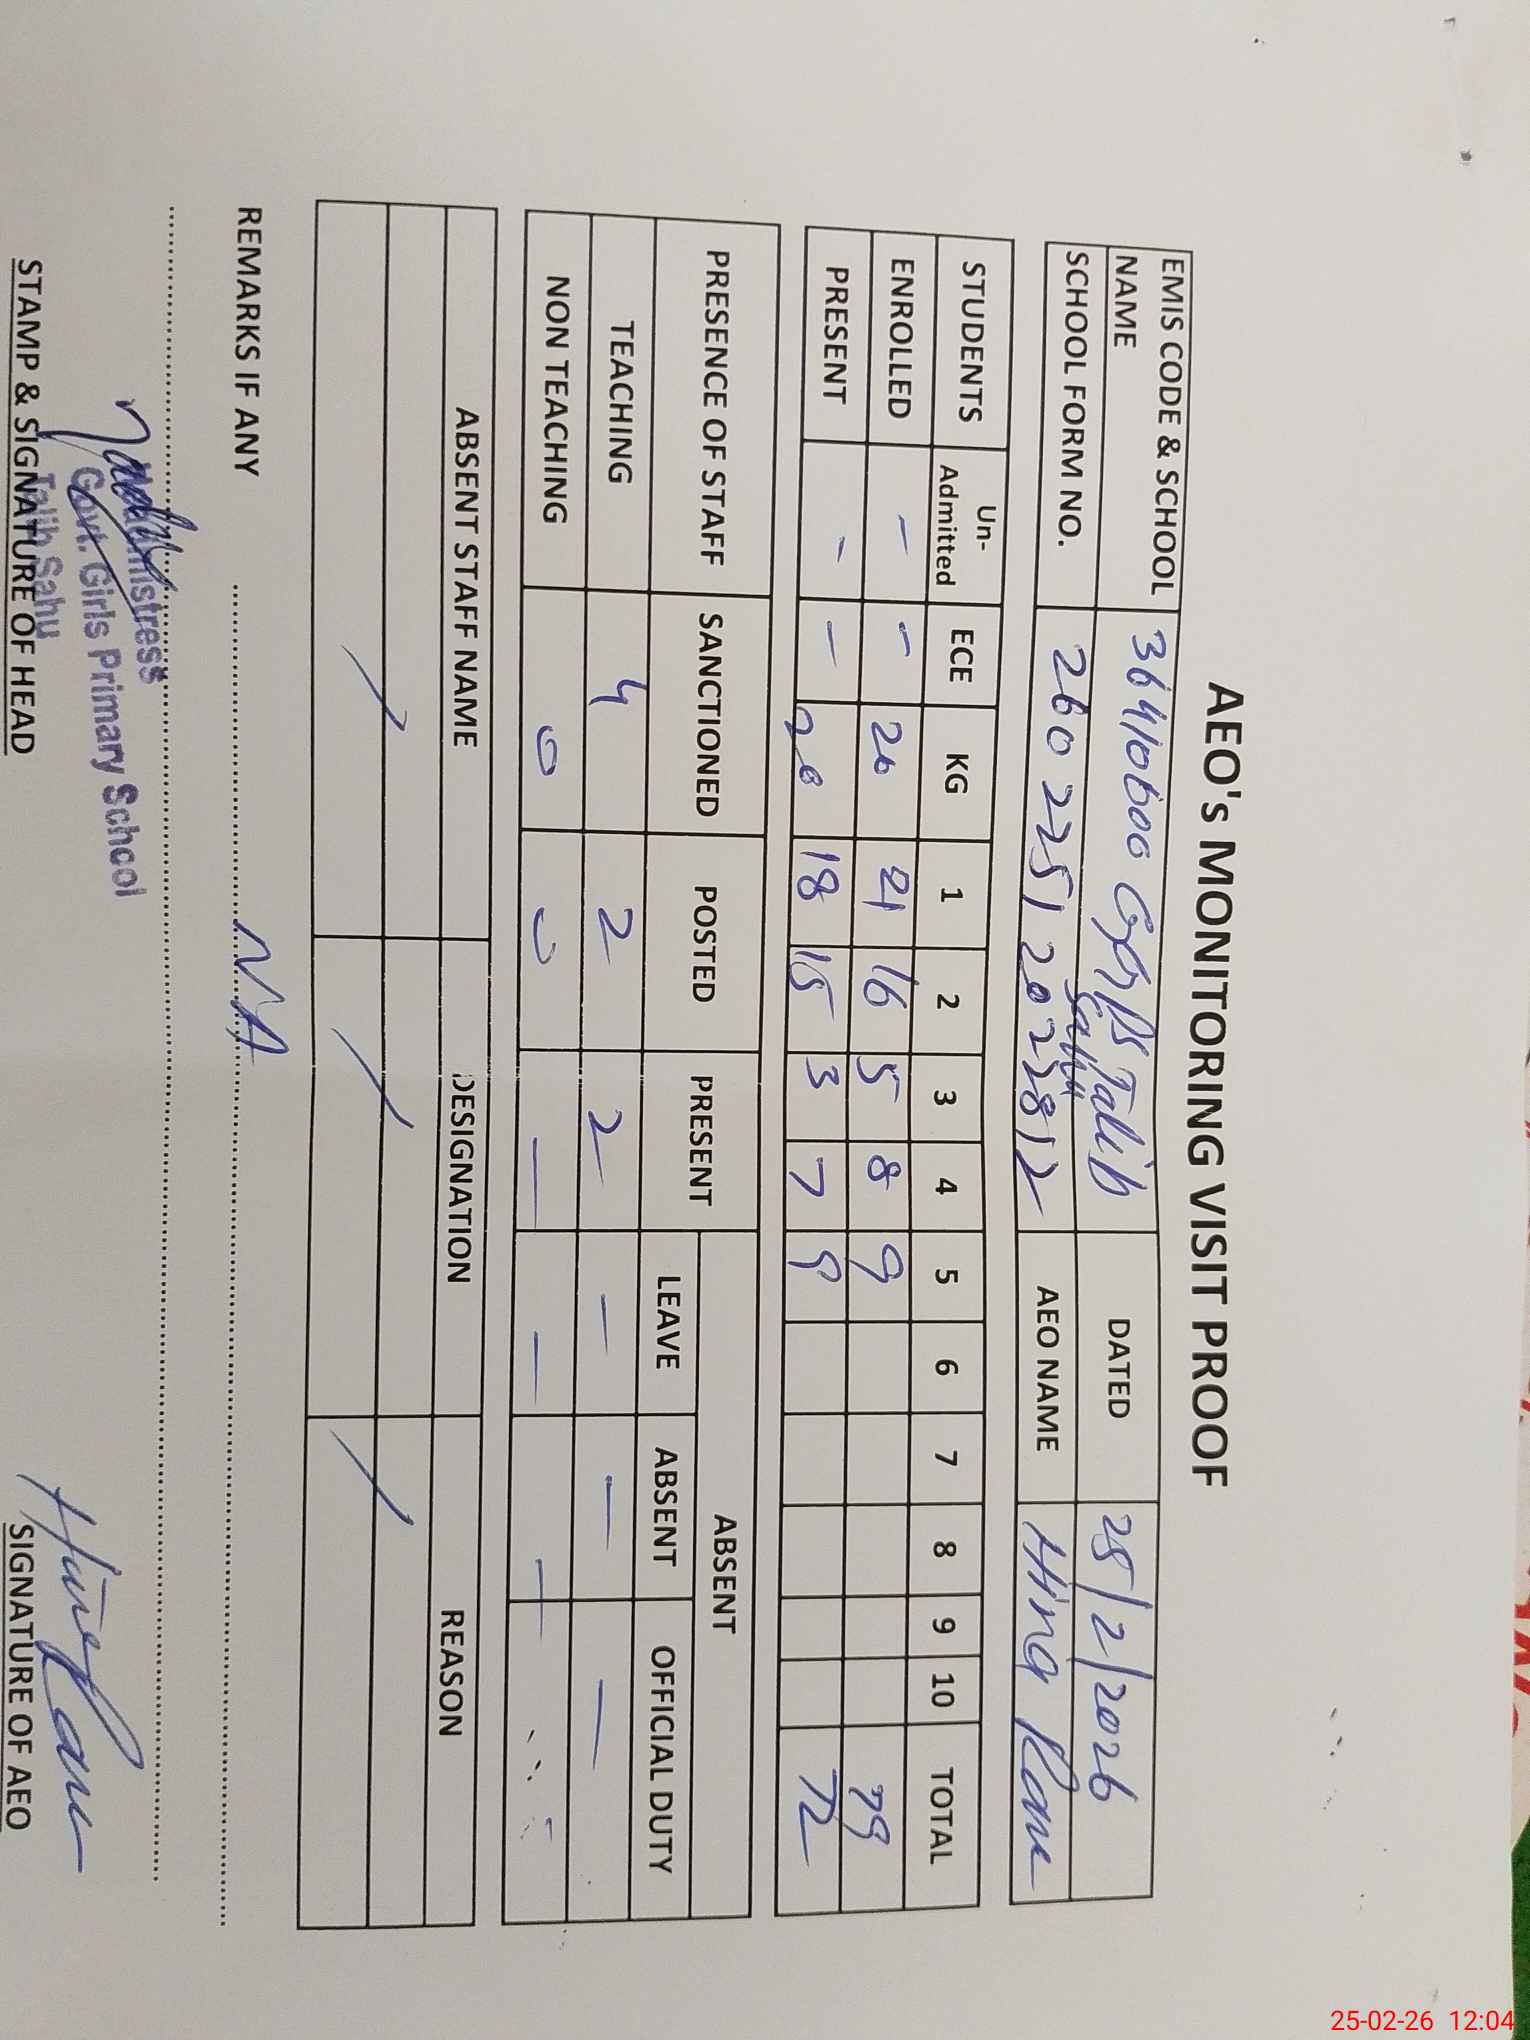 AEO's MONITORING VISIT PROOF
EMIS CODE & SCHOOL NAME 36410600 GGPS Talib Sahu DATED 25/2/2026
SCHOOL FORM NO. 260 2251 2022812 AEO NAME Hina Rane
STUDENTS Un-Admitted ECE KG 1 2 3 4 5 6 7 8 9 10 TOTAL
ENROLLED - - 20 21 16 5 8 9 79
PRESENT - - 20 18 15 3 7 9 72
PRESENCE OF STAFF SANCTIONED POSTED PRESENT ABSENT
LEAVE ABSENT OFFICIAL DUTY
TEACHING 4 2 2 - - -
NON TEACHING 0 0 - - -
ABSENT STAFF NAME DESIGNATION REASON
REMARKS IF ANY NA
Govt. Girls Primary School
Talib Sahu
STAMP & SIGNATURE OF HEAD SIGNATURE OF AEO
25-02-26 12:04